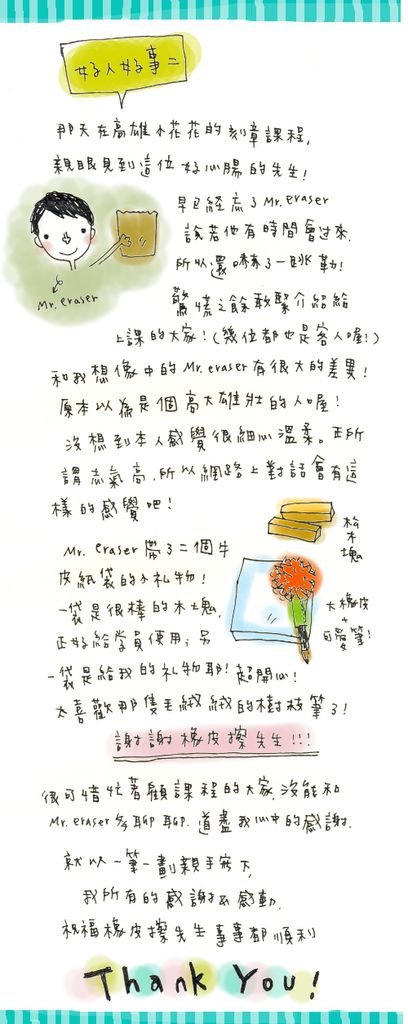 好人好事二
那天在高雄小花花的刻章課程,
親眼見到這位好心腸的先生!
早已經忘了Mr.eraser
說若他有時間會過來.
所以還嚇了一跳勒!
Mr. eraser
驚慌之餘趕緊介紹給
上課的大家!(幾位都也是客人喔!)
和我想像中的Mr.eraser有很大的差異!
原本以為是個高大雄壯的人喔!
沒想到本人感覺很細心溫柔。正所
謂志氣高.所以網路上對話會有這
樣的感覺吧!
Mr. eraser帶了二個牛
皮紙袋的小礼物!
一袋是很棒的木塊.
正好給學員使用;另
一袋是給我的礼物耶!超開心!
太喜歡那隻毛絨絨的樹枝筆了!
木塊
大橡皮
+
可愛筆!
謝謝橡皮擦先生!!!
很可惜忙著顧課程的大家.沒能和
Mr.eraser多聊聊.道盡我心中的感謝.
就以一筆一劃親手寫下,
我所有的感謝&感動.
祝福橡皮擦先生事事都順利
Thank You!